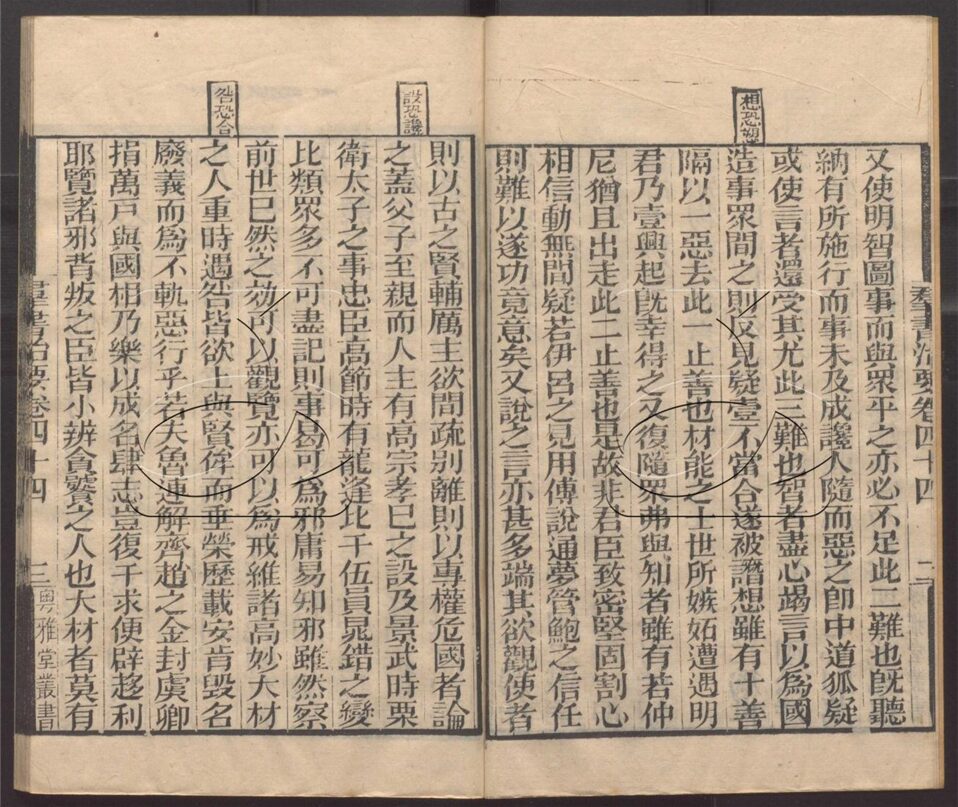 想恐愬
又使明智圖事而與眾平之亦必不足此二難也既聽
納有所施行而事未及成讒人隨而惡之卽中道狐疑
或使言者還受其尤此三難也智者盡心竭言以為國
造事眾間之則反見疑壹不當合遂被譖想雖有十善
隔以一惡去此一止善也材能之士世所嫉妬遭遇明
君乃壹興起旣幸得之又復隨眾弗與知者雖有若仲
尼猶且出走此二止善也是故非君臣致密堅固割心
相信動無間疑若伊呂之見用傅說通夢管鮑之信任
則難以遂功竟意矣又說之言亦甚多端其欲觀使者
羣書治要卷四十四 二
設恐讒
咎恐含
則以古之賢輔厲主欲間疏別離則以專權危國者論
之蓋父子至親而人主有高宗孝已之設及景武時栗
衛太子之事忠臣高節時有龍逢比干伍員晁錯之變
比類眾多不可盡記則事曷可為邪庸易知邪雖然察
前世已然之効可以觀覽亦可以為戒維諸高妙大材
之人重時遇咎皆欲上與賢侔而垂榮歷載安肯毀名
廢義而為不軌惡行乎若夫魯連解齊趙之金封虞卿
捐萬戶與國相乃樂以成名肆志豈復干求便辟趍利
耶覽諸邪背叛之臣皆小辨貪饕之人也大材者莫有
羣書治要卷四十四 三 粵雅堂叢書